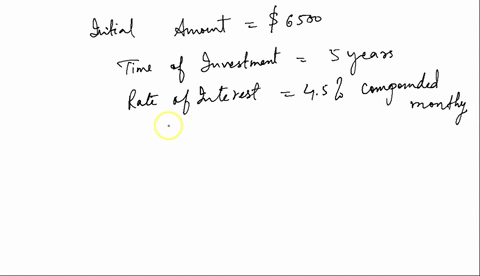 Initial Amount = $6500
Time of Investment = 5 years
Rate of Interest = 4.5% compounded
monthy